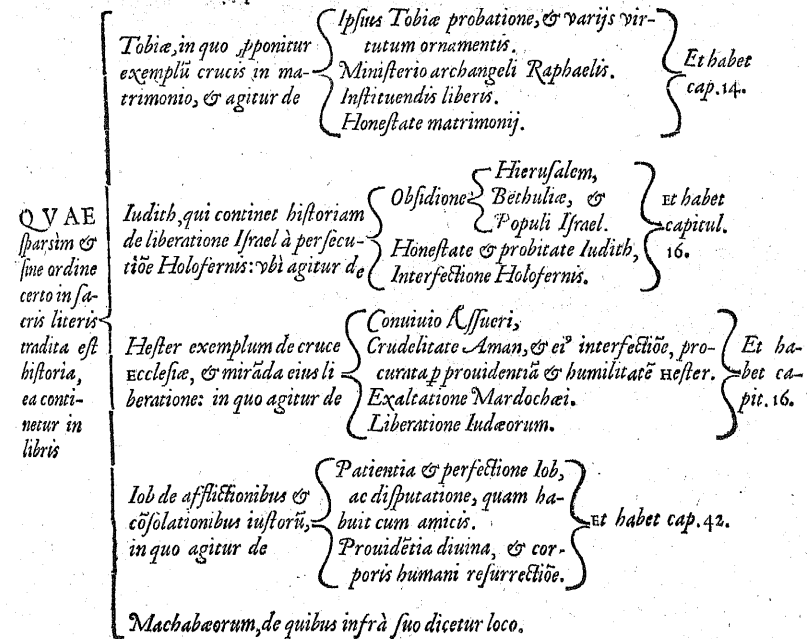 QVAE
sparsim &
sine ordine
certo in sa-
cris literis
tradita est
historia,
ea conti-
netur in
libris
Tobiæ, in quo ꝓponitur
exemplū crucis in ma-
trimonio, & agitur de
Ipsius Tobiæ probatione, & varijs vir-
tutum ornamentis.
Ministerio archangeli Raphaelis.
Instituendis liberis.
Honestate matrimonij.
Et habet
cap. 14.
Iudith, qui continet historiam
de liberatione Israel à persecu-
tiōe Holofernis: vbi agitur de
Obsidione
Hierusalem,
Bethuliæ, &
Populi Israel.
Honestate & probitate Iudith,
Interfectione Holofernis.
Et habet
capitul.
16.
Hester exemplum de cruce
Ecclesiæ, & mirāda eius li
beratione: in quo agitur de
Conuiuio Assueri,
Crudelitate Aman, & eiꝰ interfectiōe, pro-
curata ꝑ prouidentiā & humilitatē Hester.
Exaltatione Mardochæi.
Liberatione Iudæorum.
Et ha-
bet ca-
pit. 16.
Iob de afflictionibus &
cōsolationibus iustorū,
in quo agitur de
Patientia & perfectione Iob,
ac disputatione, quam ha-
buit cum amicis.
Prouidētia diuina, & cor-
poris humani resurrectiōe.
Et habet cap. 42.
Machabæorum, de quibus infrà suo dicetur loco.